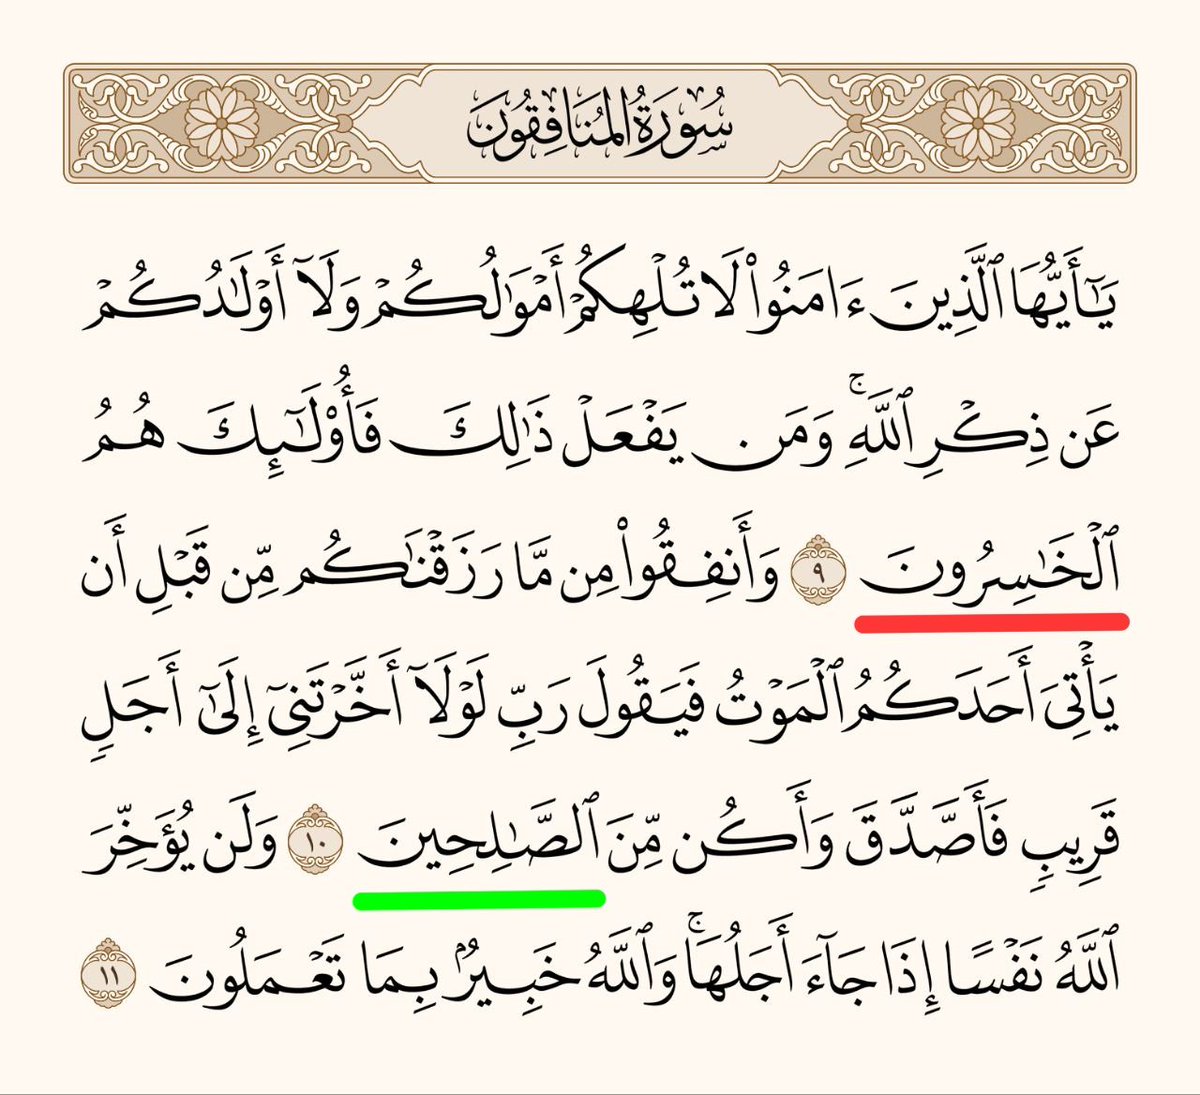 سُورَةُ المُنَافِقُونَ
يَـٰٓأَيُّهَا ٱلَّذِينَ ءَامَنُوا۟ لَا تُلْهِكُمْ أَمْوَٰلُكُمْ وَلَآ أَوْلَـٰدُكُمْ
عَن ذِكْرِ ٱللَّهِ ۚ وَمَن يَفْعَلْ ذَٰلِكَ فَأُو۟لَـٰٓئِكَ هُمُ
ٱلْخَـٰسِرُونَ ٩ وَأَنفِقُوا۟ مِن مَّا رَزَقْنَـٰكُم مِّن قَبْلِ أَن
يَأْتِىَ أَحَدَكُمُ ٱلْمَوْتُ فَيَقُولَ رَبِّ لَوْلَآ أَخَّرْتَنِىٓ إِلَىٰٓ أَجَلٍ
قَرِيبٍ فَأَصَّدَّقَ وَأَكُن مِّنَ ٱلصَّـٰلِحِينَ ١٠ وَلَن يُؤَخِّرَ
ٱللَّهُ نَفْسًا إِذَا جَآءَ أَجَلُهَا ۚ وَٱللَّهُ خَبِيرٌۢ بِمَا تَعْمَلُونَ ١١